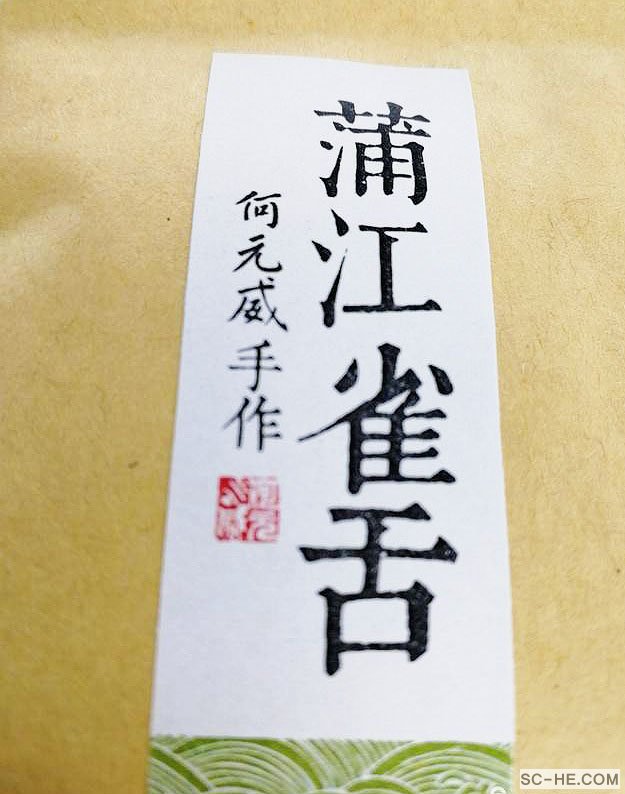 蒲江雀舌
何元威手作
SC-HE.COM